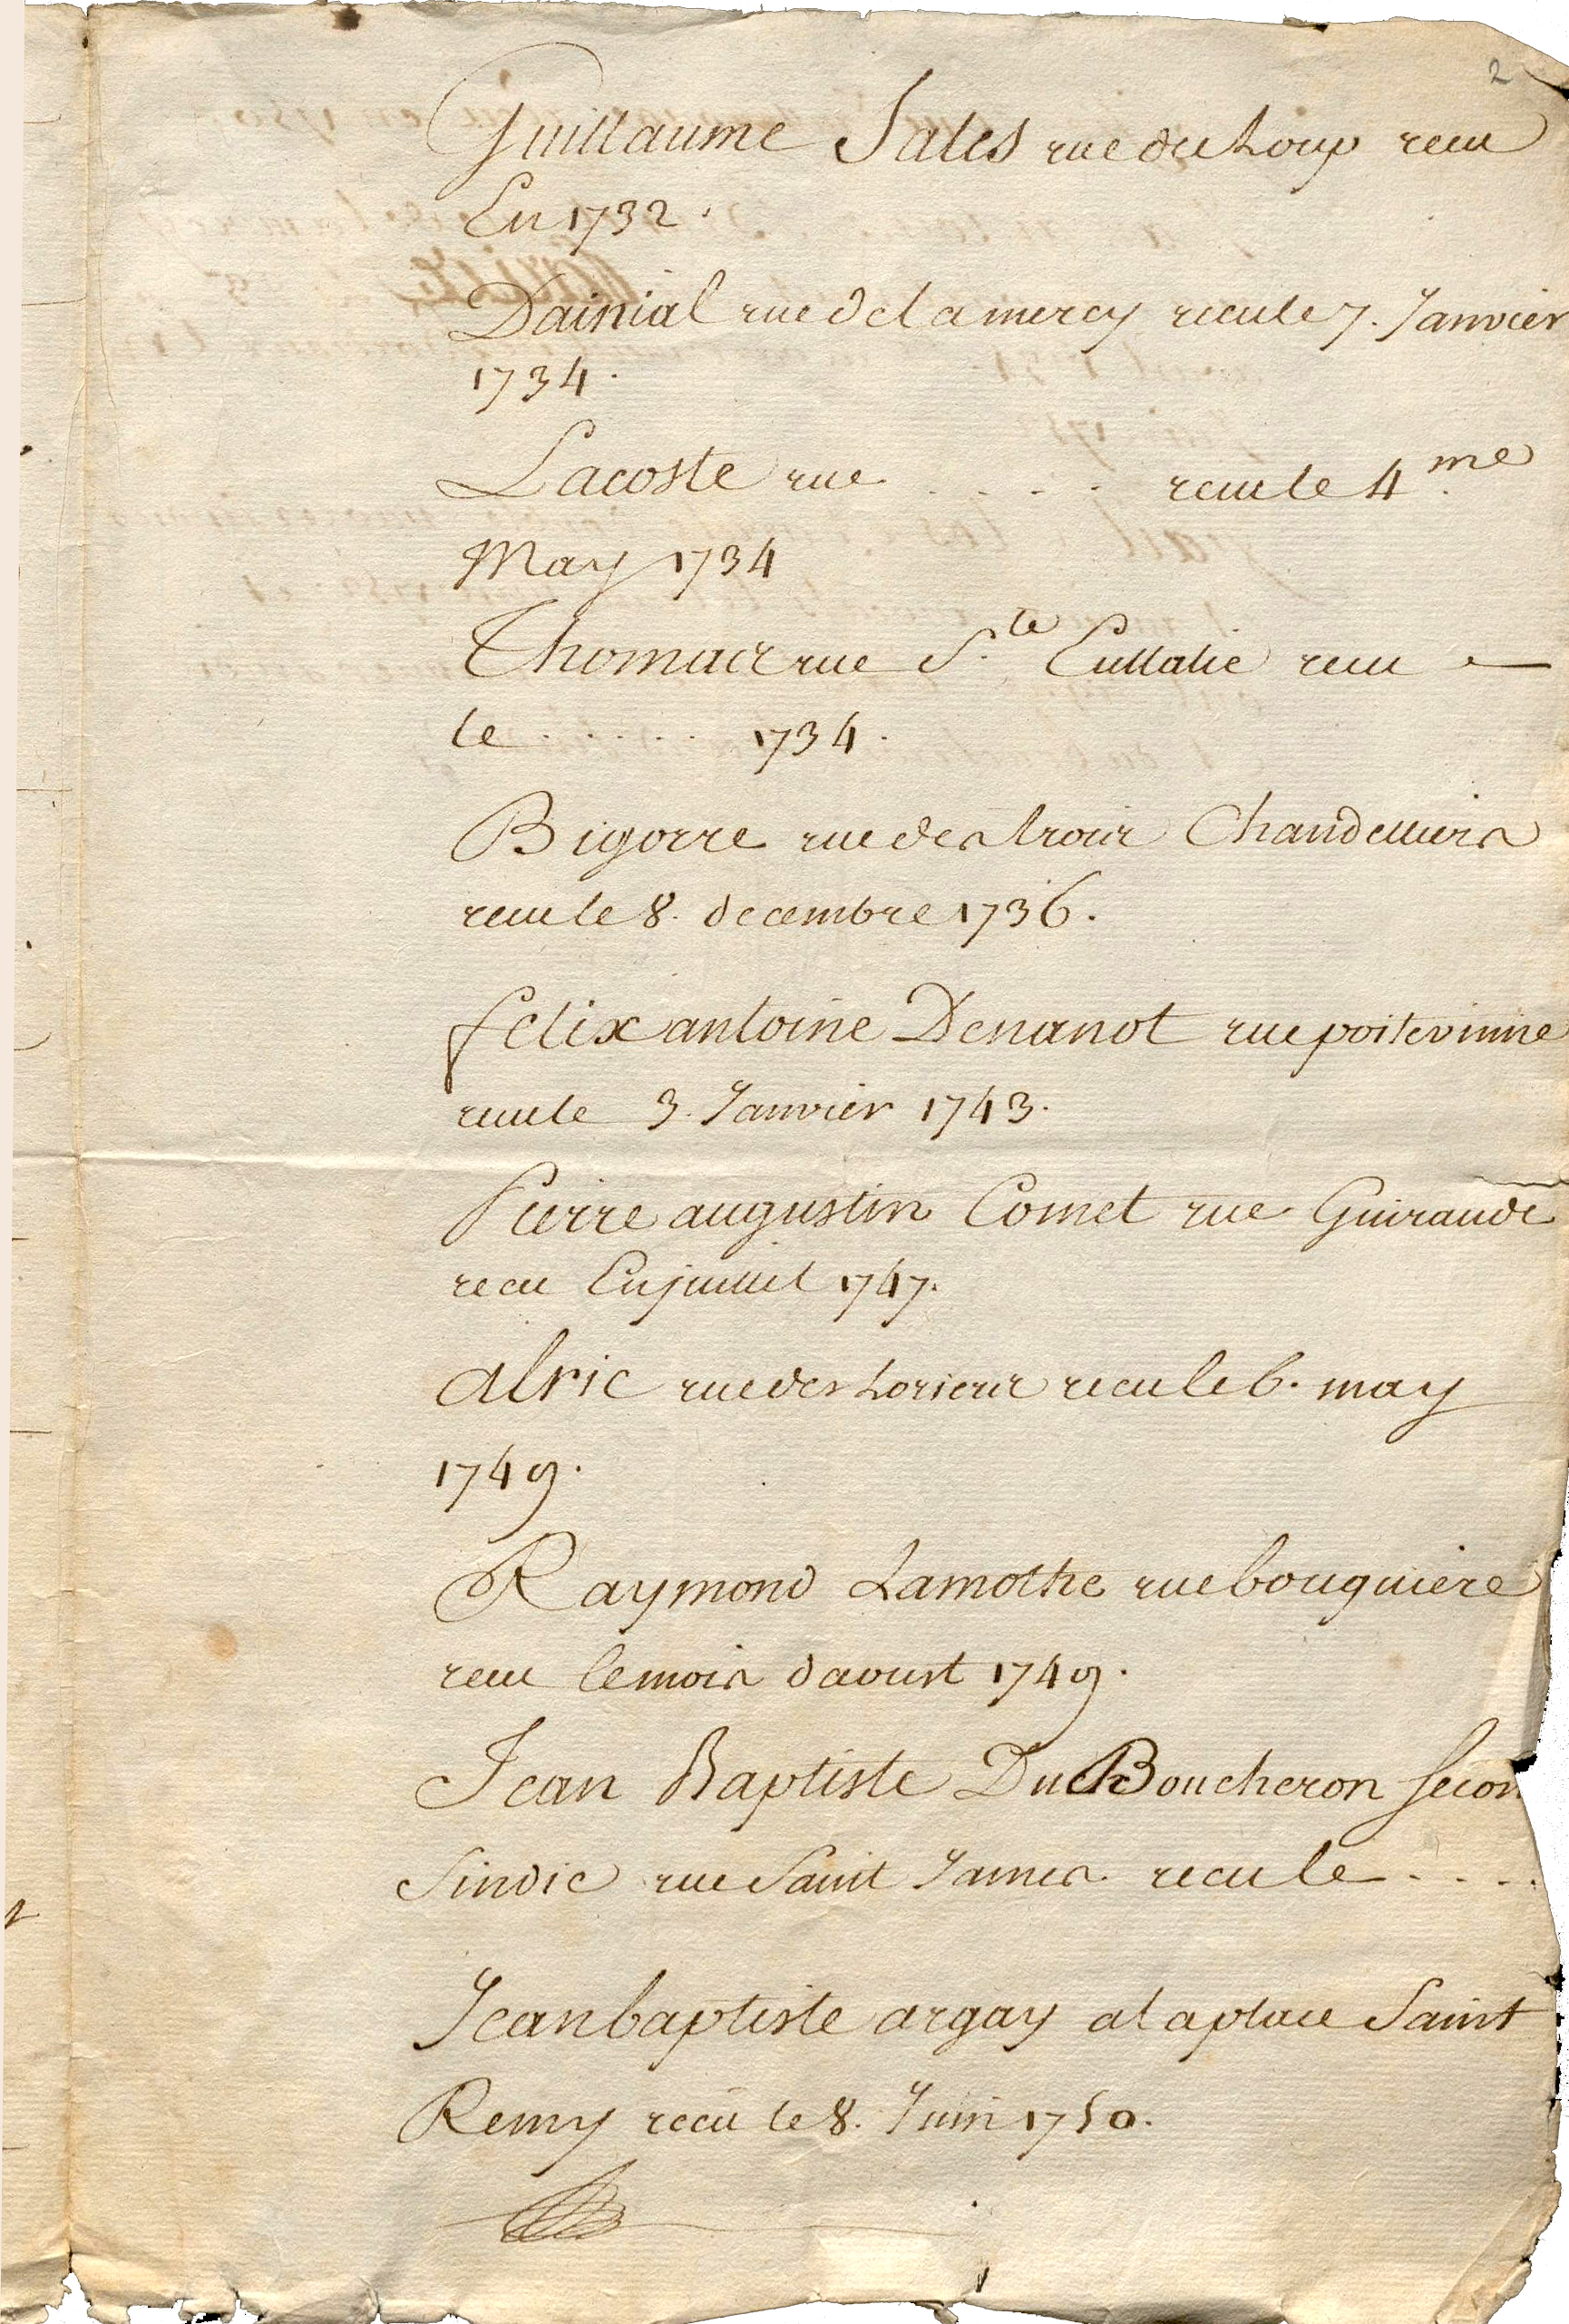 2
Guillaume Sales rue du Loup recu
En 1732.
Dainial rue de la mercy recu le 7. Janvier
1734.
Lacoste rue . . . . recu le 4.me
May 1734
Thomas rue S.te Eullalie recu
le . . . . . 1734.
Bigorre rue des trois Chandelliers
recu le 8. decembre 1736.
felix antoine Denanot rue poitevinne
recu le 3. Janvier 1743.
Pierre augustin Comet rue Guiraude
recu En juillet 1747.
alric rue des Lorieux recu le 6. may
1749.
Raymond Lamothe rue bouquiere
recu le mois d'aoust 1749.
Jean Baptiste DuBoucheron secon
Sindic rue Saint James. recu le . . . .
Jean baptiste argay a la place Saint
Remy recu le 8. Juin 1750.